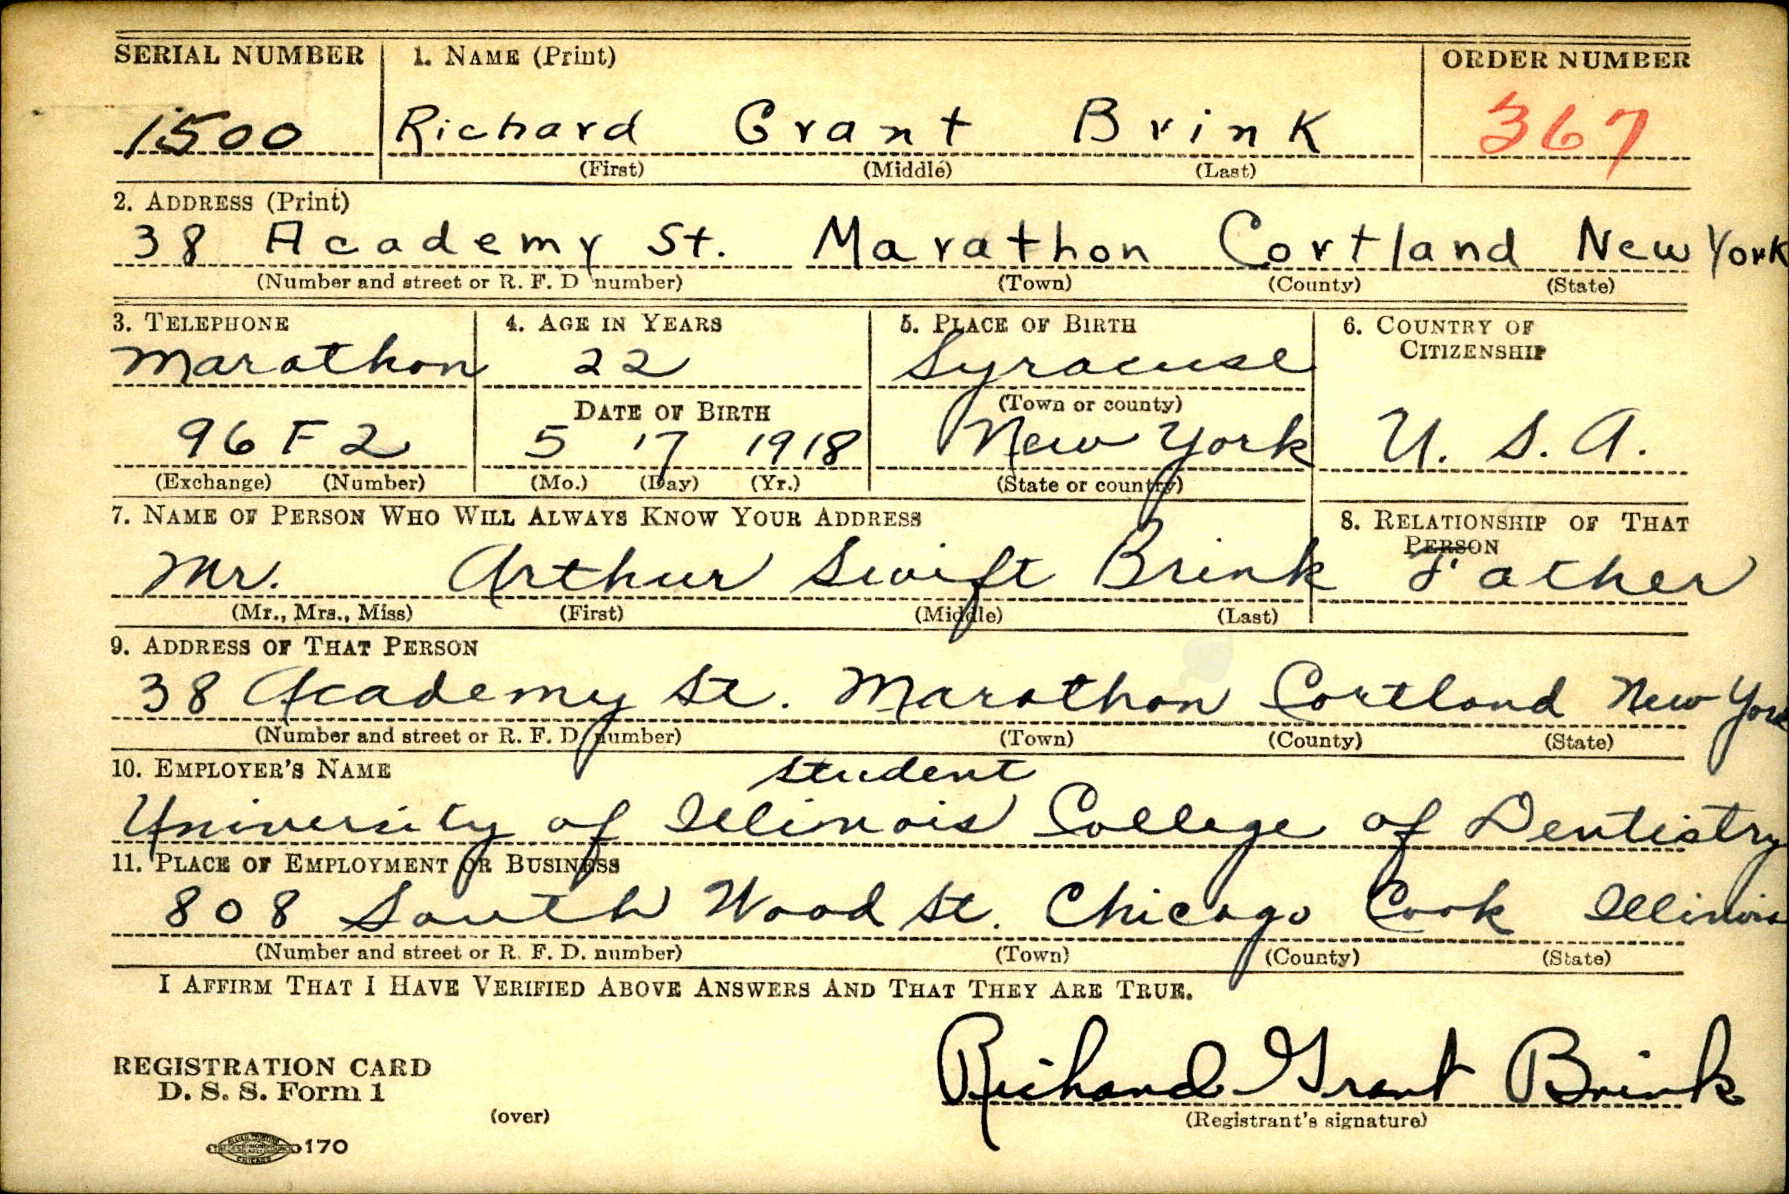 SERIAL NUMBER 1. NAME (Print) ORDER NUMBER
1500 Richard Grant Brink 367
(First) (Middle) (Last)
2. ADDRESS (Print)
38 Academy St. Marathon Cortland New York
(Number and street or R. F. D number) (Town) (County) (State)
3. TELEPHONE 4. AGE IN YEARS 5. PLACE OF BIRTH 6. COUNTRY OF
CITIZENSHIP
Marathon 22 Syracuse
DATE OF BIRTH (Town or county)
96 F 2 5 17 1918 New York U. S. A.
(Exchange) (Number) (Mo.) (Day) (Yr.) (State or country)
7. NAME OF PERSON WHO WILL ALWAYS KNOW YOUR ADDRESS 8. RELATIONSHIP OF THAT
PERSON
Mr. Arthur Swift Brink Father
(Mr., Mrs., Miss) (First) (Middle) (Last)
9. ADDRESS OF THAT PERSON
38 Academy St. Marathon Cortland New York
(Number and street or R. F. D. number) (Town) (County) (State)
10. EMPLOYER'S NAME student
University of Illinois College of Dentistry
11. PLACE OF EMPLOYMENT OR BUSINESS
808 South Wood St. Chicago Cook Illinois
(Number and street or R. F. D. number) (Town) (County) (State)
I AFFIRM THAT I HAVE VERIFIED ABOVE ANSWERS AND THAT THEY ARE TRUE.
Richard Grant Brink
REGISTRATION CARD
D. S. S. Form 1
(over) (Registrant's signature)
170